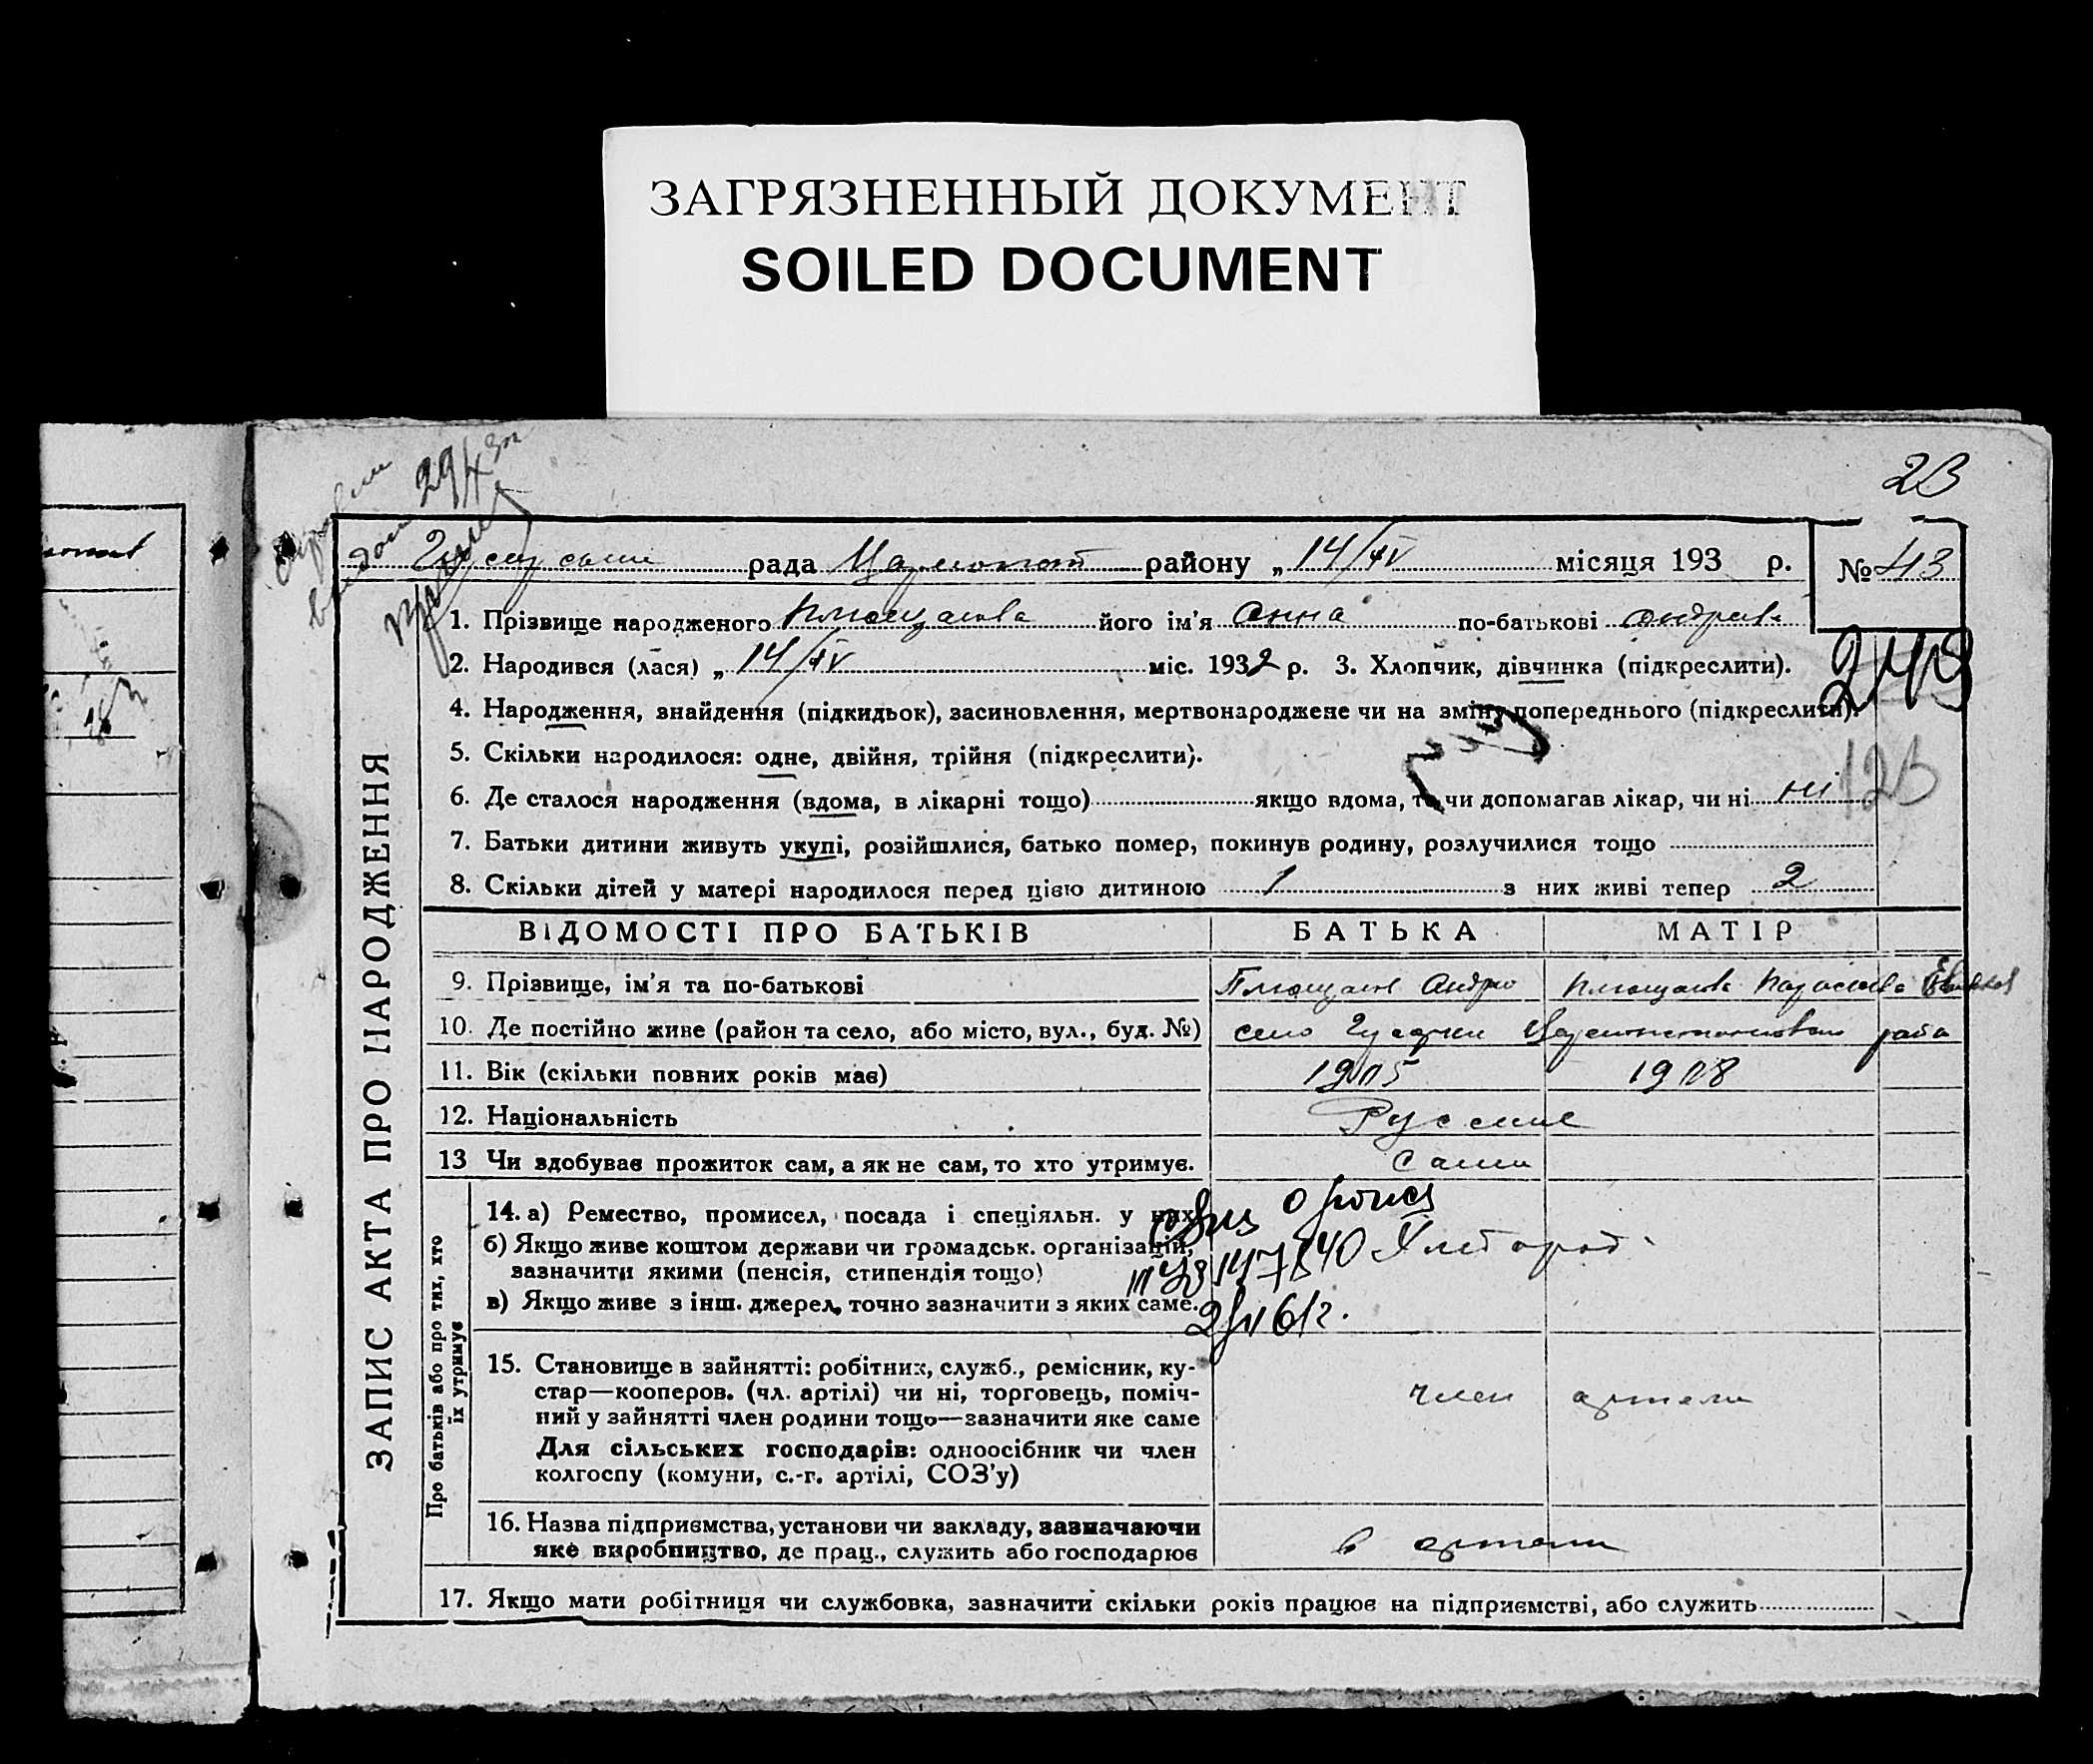 ЗАГРЯЗНЕННЫЙ ДОКУМЕНТ
SOILED DOCUMENT
29/X
23
рада район у „14/IV місяця 193 р. № 43
1. Прізвище народженого його ім'я Анна по-батькові Андрієв
2. Народився (лася) „ 14/IV міс. 1932 р. 3. Хлопчик, дівчинка (підкреслити).
243
4. Народження, знайдення (підкидьок), засиновлення, мертвонароджене чи на зміну попереднього (підкреслити).
5. Скільки народилося: одне, двійня, трійня (підкреслити).
123
6. Де сталося народження (вдома, в лікарні тощо) якщо вдома, то чи допомагав лікар, чи ні ні
7. Батьки дитини живуть укупі, розійшлися, батько помер, покинув родину, розлучилися тощо
8. Скільки дітей у матері народилося перед цією дитиною 1 з них живі тепер 2
ЗАПИС АКТА ПРО НАРОДЖЕННЯ
ВІДОМОСТІ ПРО БАТЬКІВ БАТЬКА МАТІР
9. Прізвище, ім'я та по-батькові
10. Де постійно живе (район та село, або місто, вул., буд. №) село
11. Вік (скільки повних років має) 1905 1908
12. Національність Русские
13 Чи здобуває прожиток сам, а як не сам, то хто утримує. Сами
Про батьків або про тих, хто їх утримує
14. а) Ремество, промисел, посада і спеціяльн. у них
б) Якщо живе коштом держави чи громадськ. організацій,
зазначити якими (пенсія, стипендія тощо)
в) Якщо живе з інш. джерел, точно зазначити з яких саме.
15. Становище в зайнятті: робітник, служб., ремісник, ку-
стар—кооперов. (чл. артілі) чи ні, торговець, поміч-
ний у зайнятті член родини тощо—зазначити яке саме член артели
Для сільських господарів: одноосібник чи член
колгоспу (комуни, с.-г. артілі, СОЗ'у)
16. Назва підприємства, установи чи закладу, зазначаючи
яке виробництво, де прац., служить або господарює в артели
17. Якщо мати робітниця чи службовка, зазначити скільки років працює на підприємстві, або служить